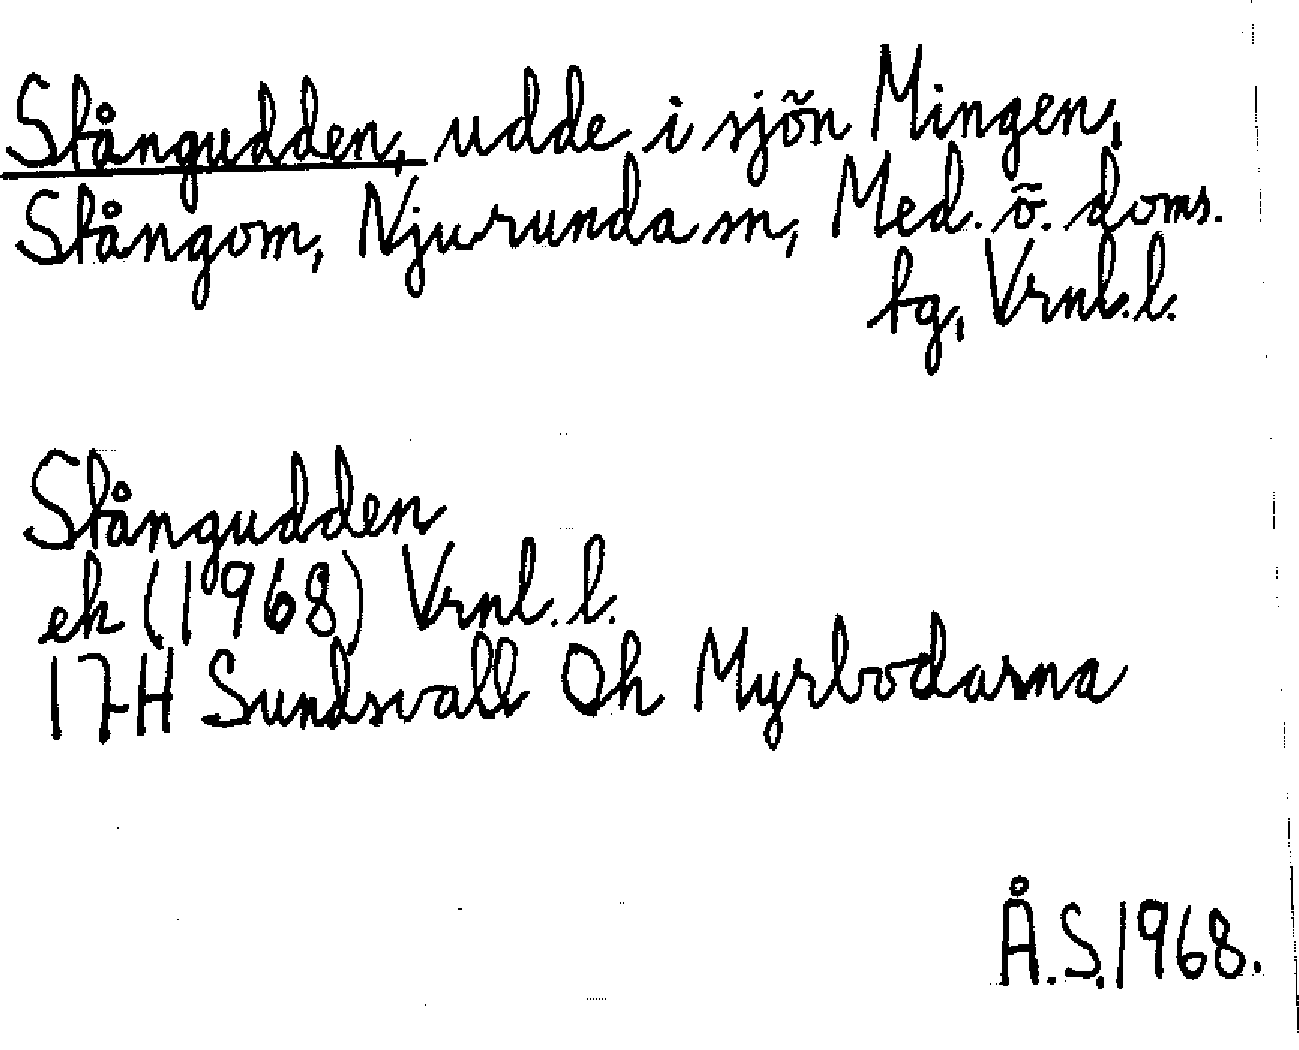 Stångudden, udde i sjön Mingen,
Stångom, Njurunda sn, Med. ö. doms.
tg, Vrnl. l.
Stångudden
ek (1968) Vrnl. l.
17H Sundsvall Oh Myrbodarna
Å.S. 1968.